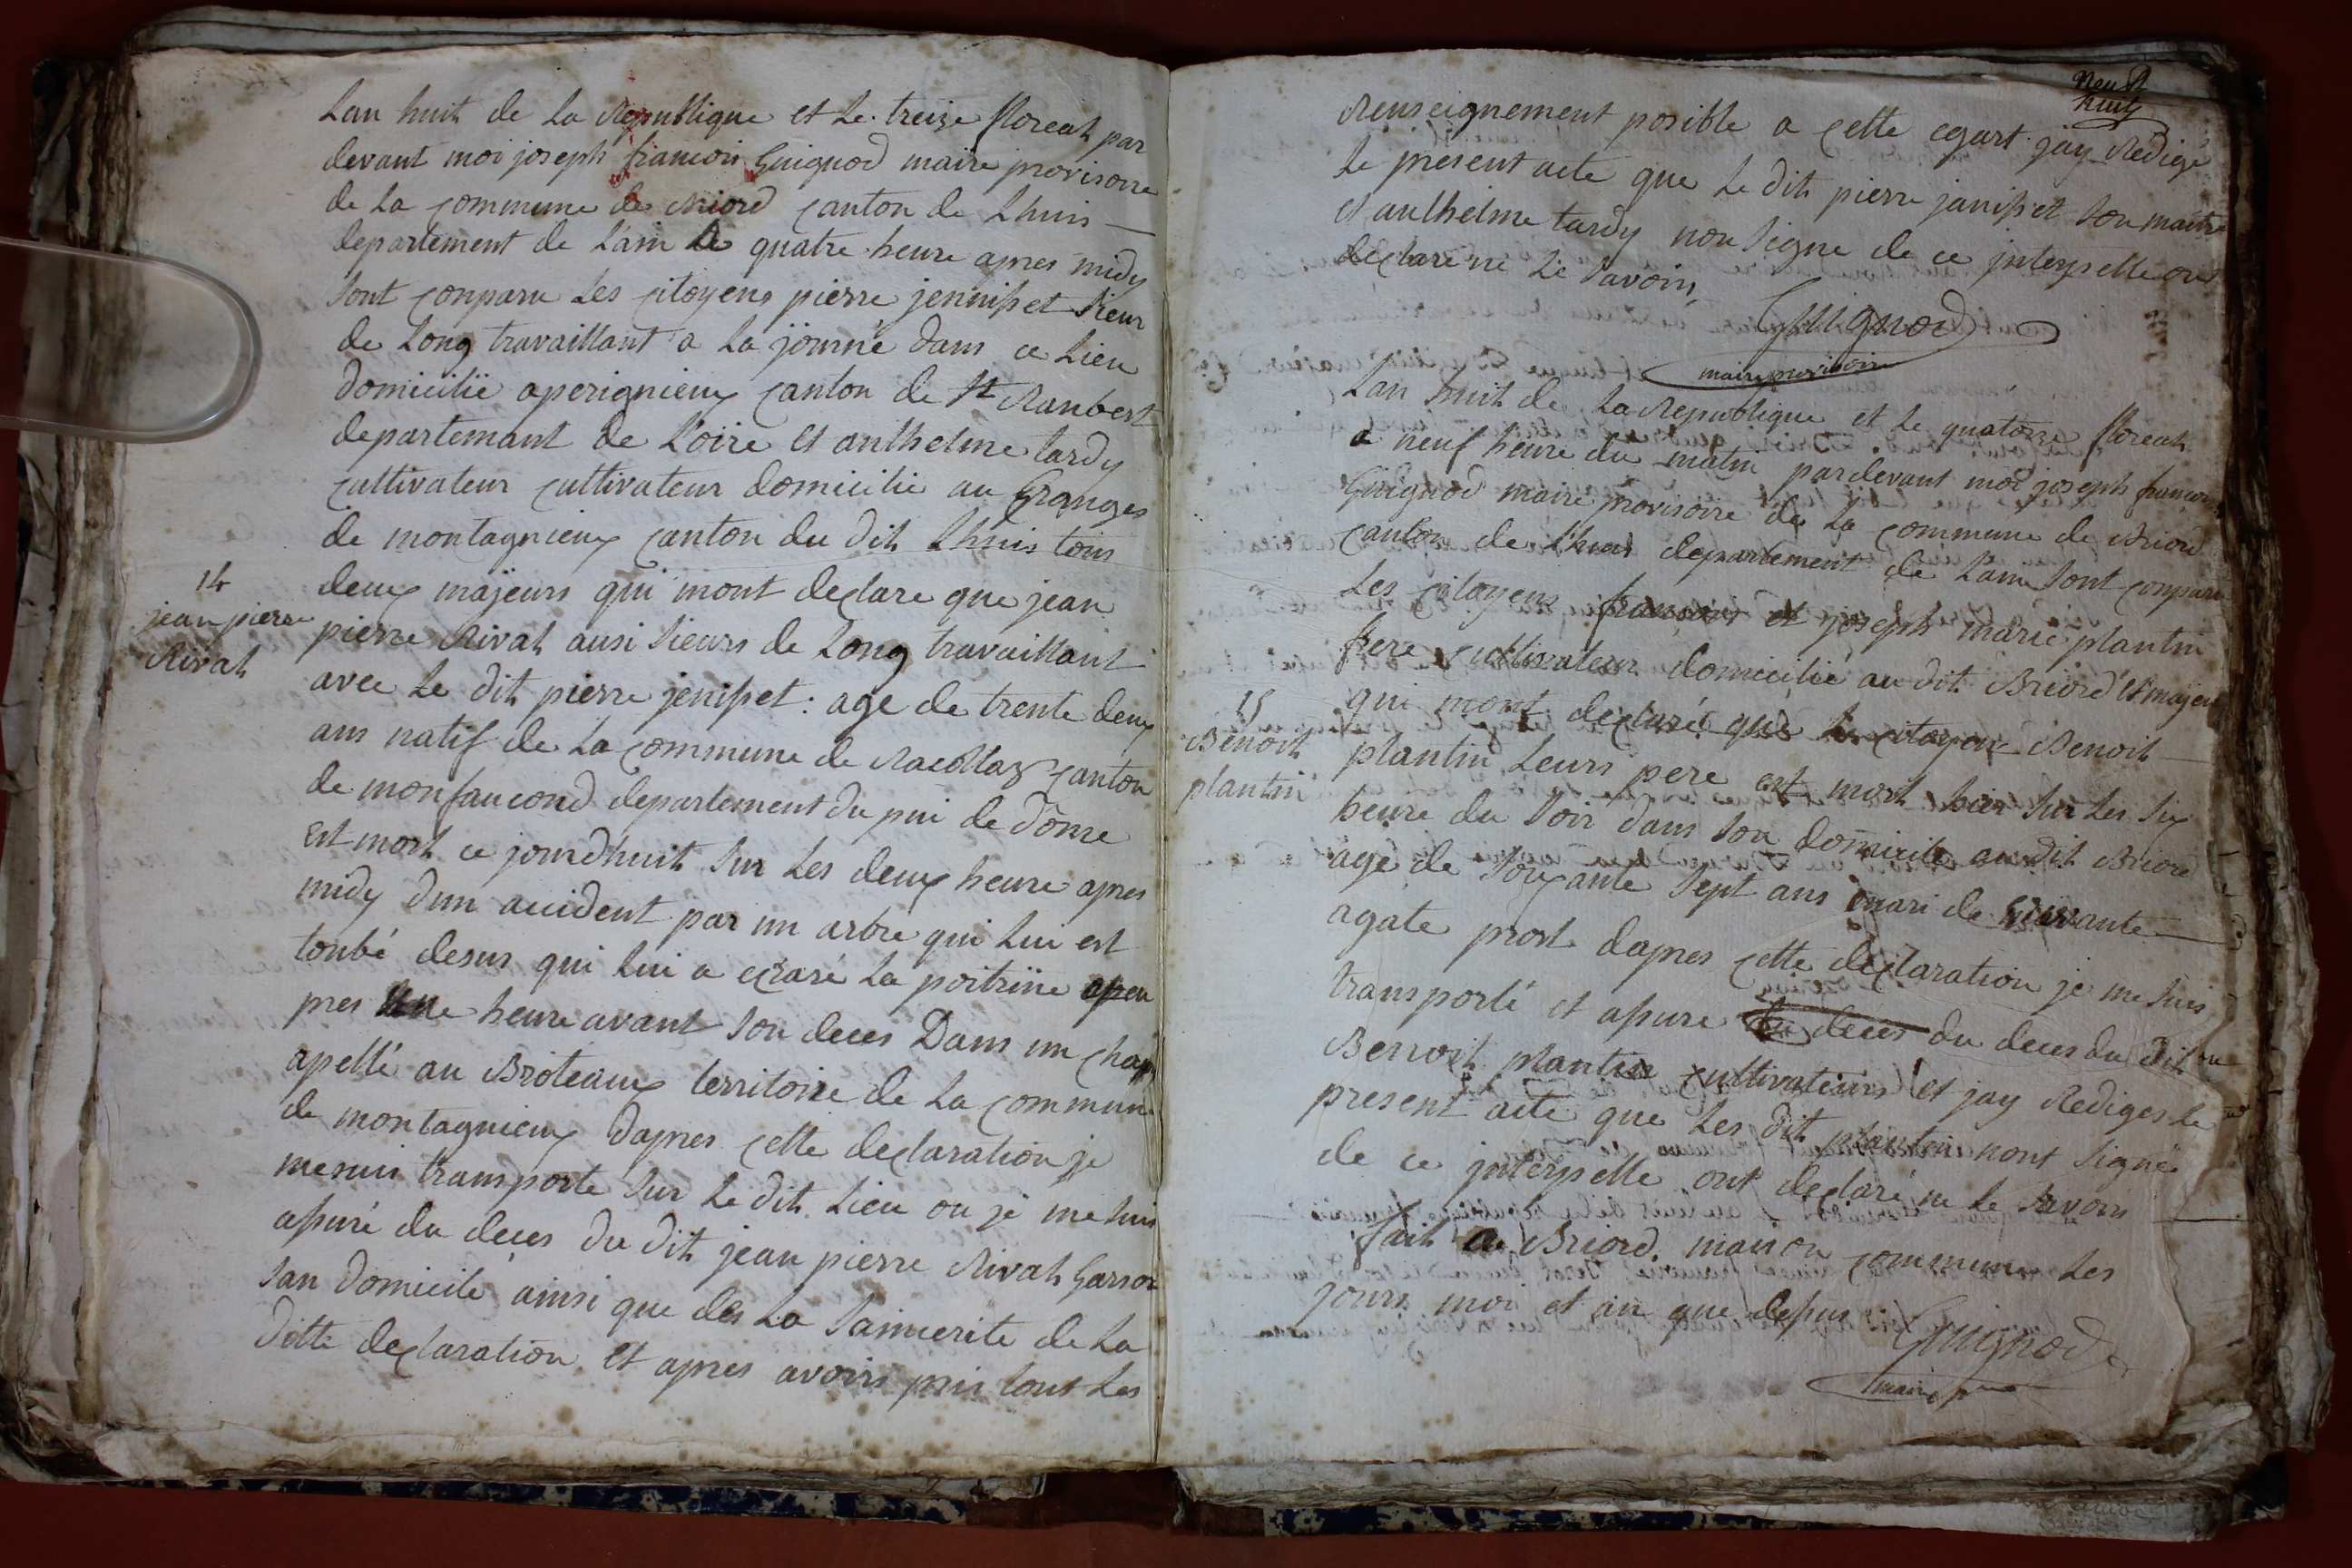 Lan huit de La Republique et Le treize floreal par
devant moi joseph francois Guignod maire provisoire
de La commune de Briord canton de Lhuis
departement de Lain Le quatre heure apres midy
Sont conparu Les citoyens pierre jenisset sieur
de Long travaillant a La journe dans ce Lieu
domicilie a perignieux canton de St Ranbert
departemant de Loire et anthelme tardy
cultivateur cultivateur domicilie au Granges
de montagnieux canton du dit Lhuis tous
deux majeurs qui mont declare que jean
14
jean pierre
Rivah
pierre Rivah ausi sieurs de Long travaillant
avec Le dit pierre jenisset : age de trente deux
ans natif de La commune de canton
de monfaucond departement du pui de dome
Est mort ce jourdhuit Sur Les deux heure apres
midy dun accident par un arbre qui Lui est
tonbé desus qui Lui a ecrasé La poitrine apeu
pres une heure avant son deces Dans un chap
apellé au Broteaux territoire de La commune
de montagnieux dapres cette declaration je
me suis transporte Sur Le dit Lieu ou je me suis
assuré du deces du dit jean pierre Rivah Garson
San domicile ainsi que des La Sainserite de La
ditte declaration et apres avoirs pris tous Les
neuf
huit
Renseignement posible a cette egart jay Redigé
Le present acte que Le dit pierre janisset son maitre
et anthelme tardy non signe de ce interpelle ont
declare ne Le Savoirs
Guignod
maire provisoire
Lan huit de La Republique et Le quatorze floreal
a neuf heure du matin pardevant moi joseph francois
Guignod maire provisoire de La commune de Briord
canton de Lhuis departement de Lain Sont conparu
Les citoyens francois et joseph marie plantin
frere cultivateur domicilié au dit Briord et majeur
qui mont declaré que Le citoyen Benoit
15
Benoit
plantin
plantin Leurs pere est mort hier Sur Les Six
heure du Soir dans Son domicile au dit Briord
age de Soixante Sept ans mari de vivante
agate prost dapres cette declaration je me suis
transporté et assure du deces du deces du dit
Benoit plantin cultivateurs et jay Rediges Le
present acte que Les dit plantin nont signé
de ce interpelle ont declaré ne Le Savoirs
fait a Briord maison commune Les
jours moi et an que dessus
Guignod
maire